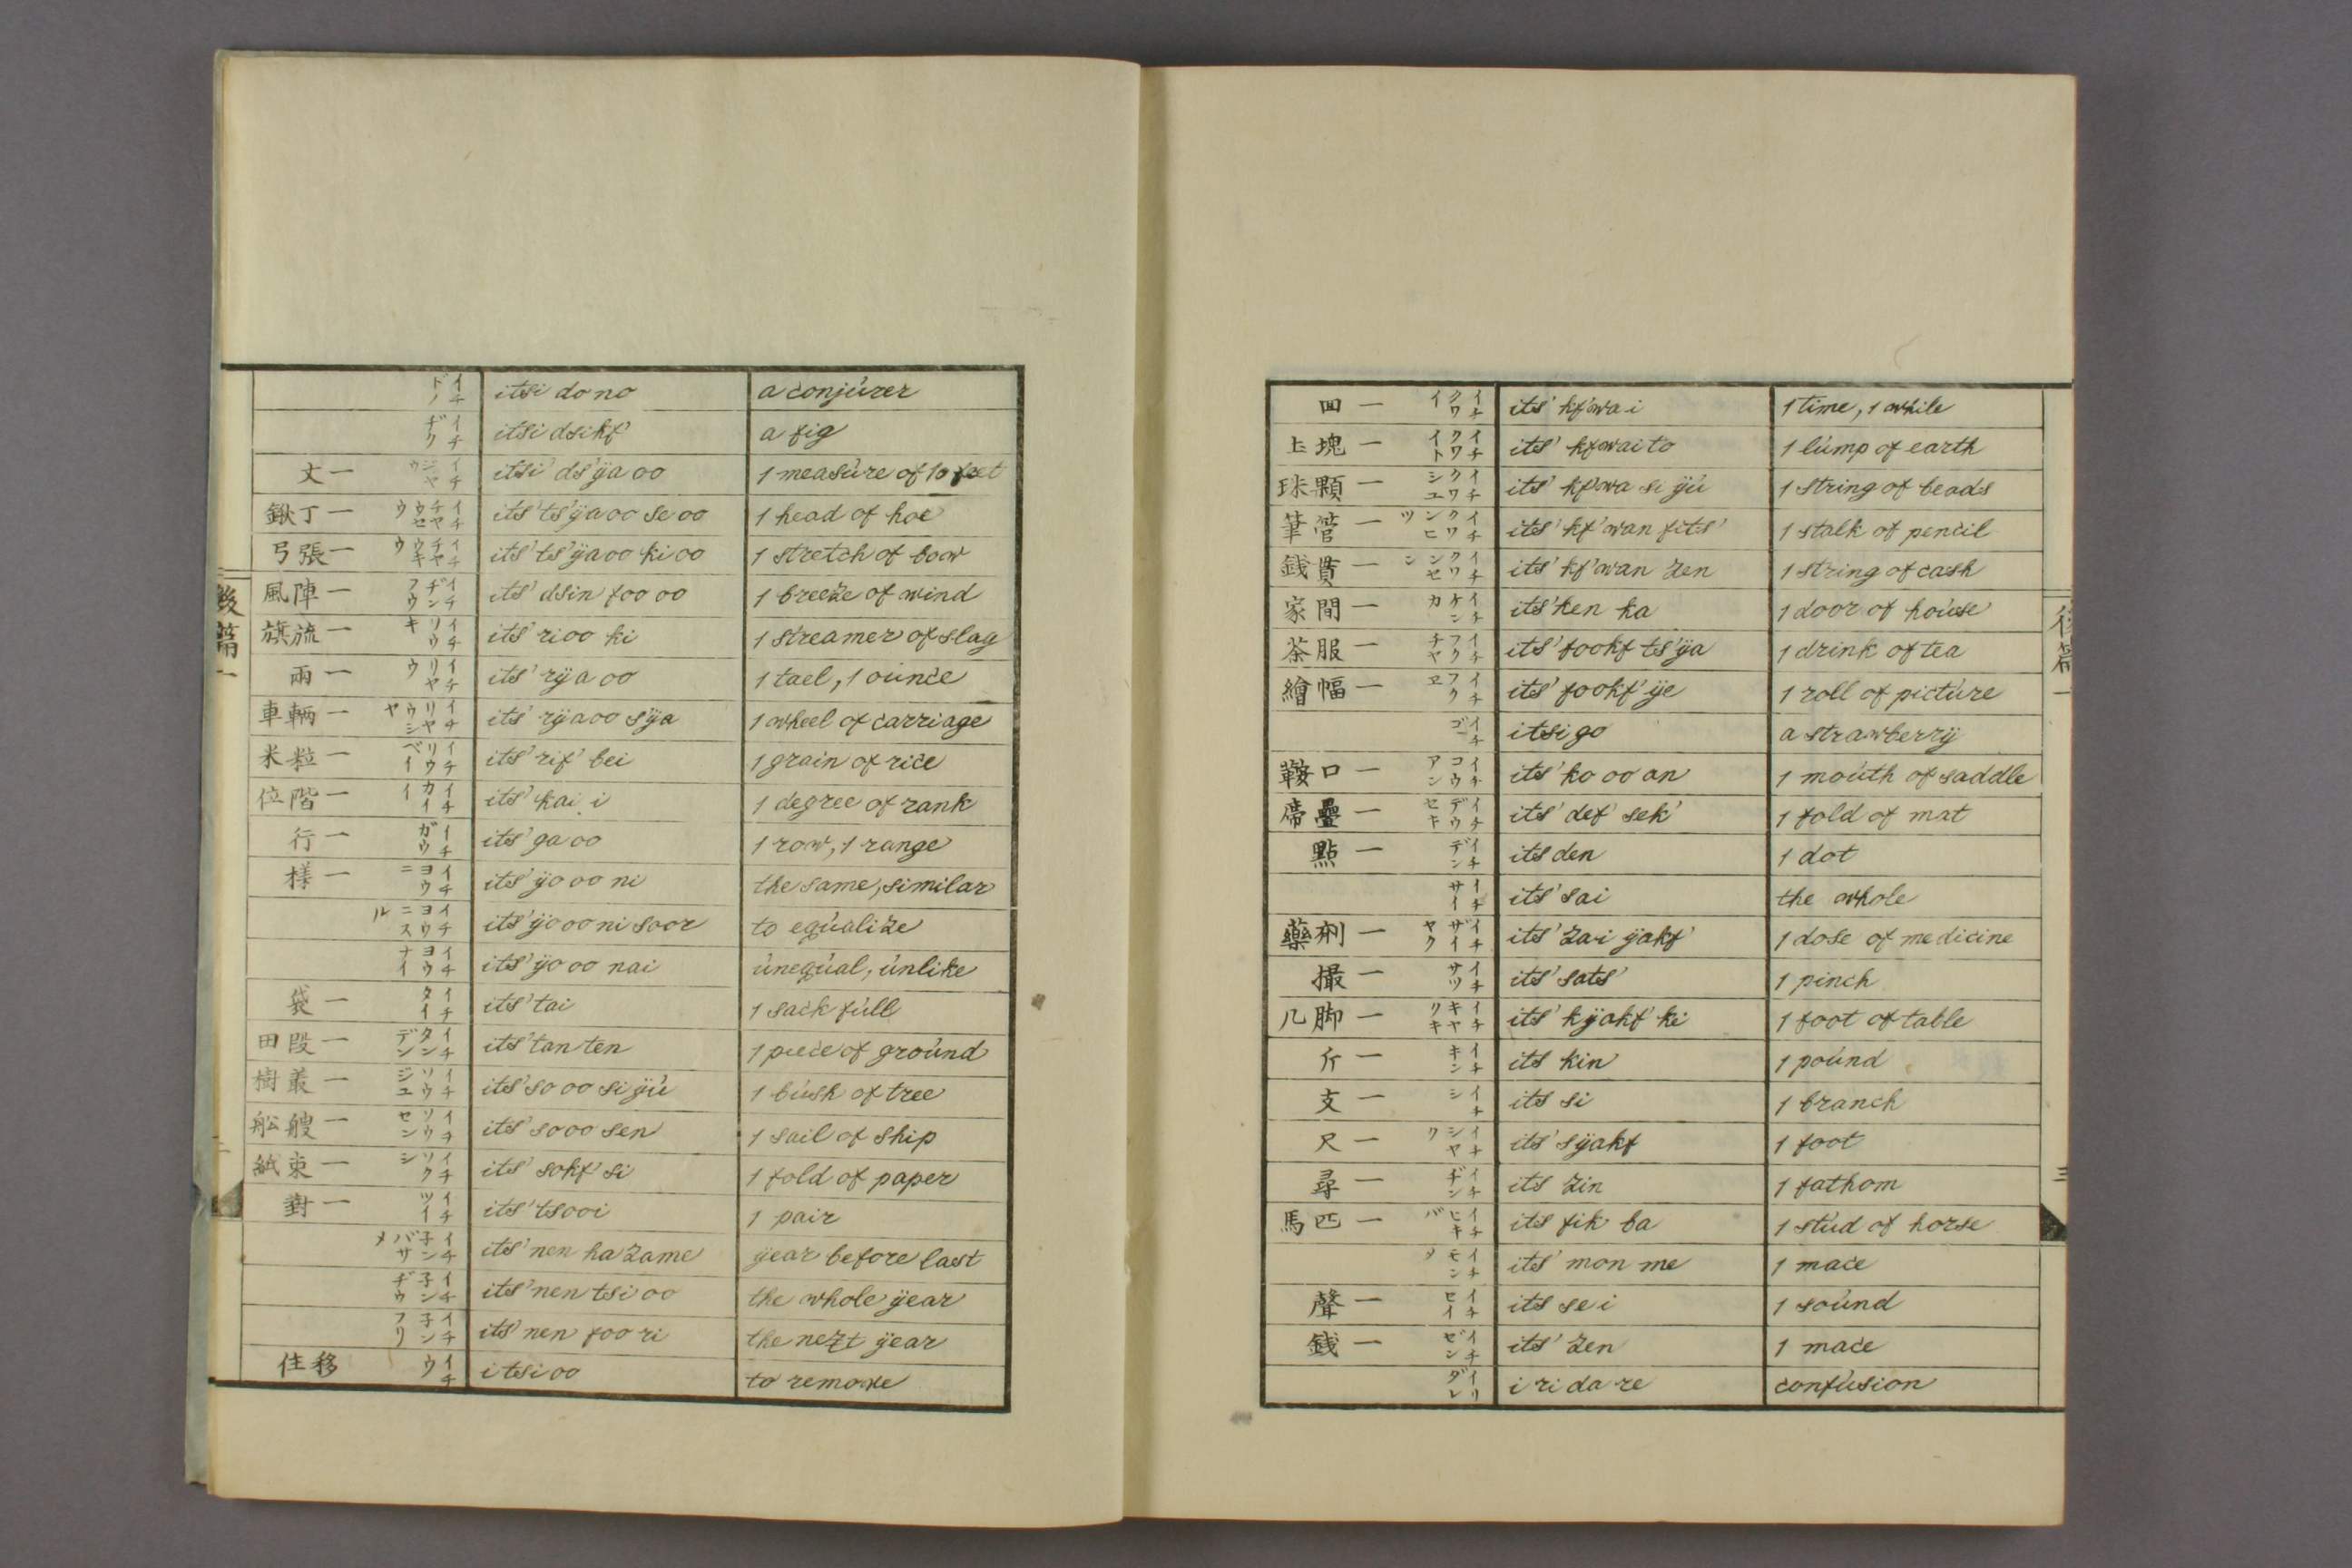 イチドノ itsi do no a conjúrer
イチヂク itsi dsikf' a fig
丈一 イチジヤウ itsi' ds'ÿa oo 1 measúre of 10 feet
鍬丁一 イチチヤウセウ its' ts'ÿa oo se oo 1 head of hoe
弓張一 イチチヤウキウ its' ts'ÿa oo ki oo 1 stretch of bow
風陣一 イチヂンフウ its' dsin foo oo 1 breeze of wind
旗流一 イチリウキ its' ri oo ki 1 streamer of slag
兩一 イチリヤウ its' rÿa oo 1 tael, 1 oúnce
車輌一 イチリヤウシヤ its' rÿa oo s'ÿa 1 wheel of carriage
米粒一 イチリウベイ its' rif' bei 1 grain of rice
位階一 イチカイイ its' kai i 1 degree of rank
行一 イチガウ its' ga oo 1 row, 1 range
様一 イチヨウニ its' ÿo oo ni the same, similar
イチヨウニスル its' ÿo oo ni soor to eqúalize
イチヨウナイ its' ÿo oo nai úneqúal, únlike
袋一 イチタイ its' tai 1 sack fúll
田段一 イチタンデン its' tan ten 1 piece of groúnd
樹叢一 イチソウジユ its' so oo si ÿú 1 búsh of tree
舩艘一 イチソウセン its' so oo sen 1 sail of ship
紙束一 イチソクシ its' sokf' si 1 fold of paper
對一 イチツイ its' tsooi 1 pair
イチ子ンバサメ its' nen ha zame ÿear before last
イチ子ンヂウ its' nen tsi oo the whole ÿear
イチ子ンフリ its' nen foo ri the nezt ÿear
住移 イチウ itsi oo to remove
後篇一
回一 イチクワイ its' kf'wa i 1 time, 1 while
土塊一 イチクワイト its' kf'wai to 1 lúmp of earth
珠顆一 イチクワシユ its' kf'wa si ÿú 1 string of beads
筆管一 イチクワンヒツ its' kf'wan fits' 1 stalk of pencil
銭貫一 イチクワンセン its' kf'wan zen 1 string of cash
家間一 イチケンカ its' ken ka 1 door of hoúse
茶服一 イチフクチヤ its' fookf ts'ÿa 1 drink of tea
繪幅一 イチフクヱ its' fookf' ÿe 1 roll of pictúre
イチゴ itsi go a strawberrÿ
鞍口一 イチコウアン its' ko oo an 1 moúth of saddle
席疊一 イチデウセキ its' def' sek' 1 fold of mat
點一 イチデン its den 1 dot
イチサイ its' sai the whole
藥剤一 イチザイヤク its' zai ÿakf' 1 dose of medicine
撮一 イチサツ its' sats' 1 pinch
几脚一 イチキヤクキ its' kÿakf' ki 1 foot of table
斤一 イチキン its kin 1 poúnd
支一 イチシ its si 1 branch
尺一 イチシヤク its' sÿakf 1 foot
尋一 イチヂン its zin 1 fathom
馬匹一 イチヒキバ its fik ba 1 stúd of horse
イチモンメ its' mon me 1 mace
聲一 イチセイ its se i 1 soúnd
銭一 イチゼン its' zen 1 mace
イリダレ i ri da re confúsion
後篇一
三